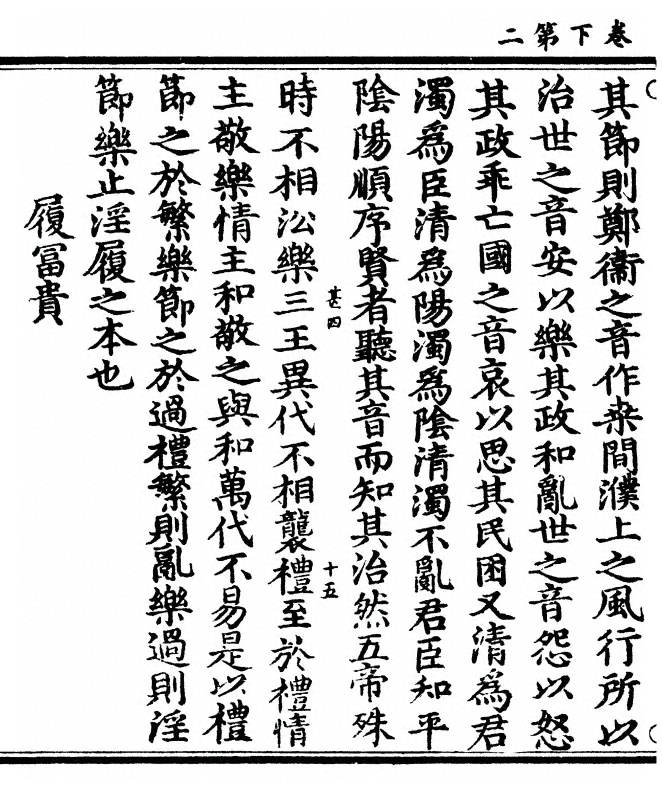 卷下第二
其節則鄭衞之音作桒間濮上之風行所以
治世之音安以樂其政和亂世之音怨以怒
其政乖亡國之音哀以思其民困又清爲君
濁爲臣清爲陽濁爲陰清濁不亂君臣知平
陰陽順序賢者聽其音而知其治然五帝殊
時不相㳂樂三王異代不相襲禮至於禮情
甚四
十五
主敬樂情主和敬之與和萬代不易是以禮
節之於繁樂節之於過禮繁則亂樂過則淫
節樂止淫履之本也
履冨貴